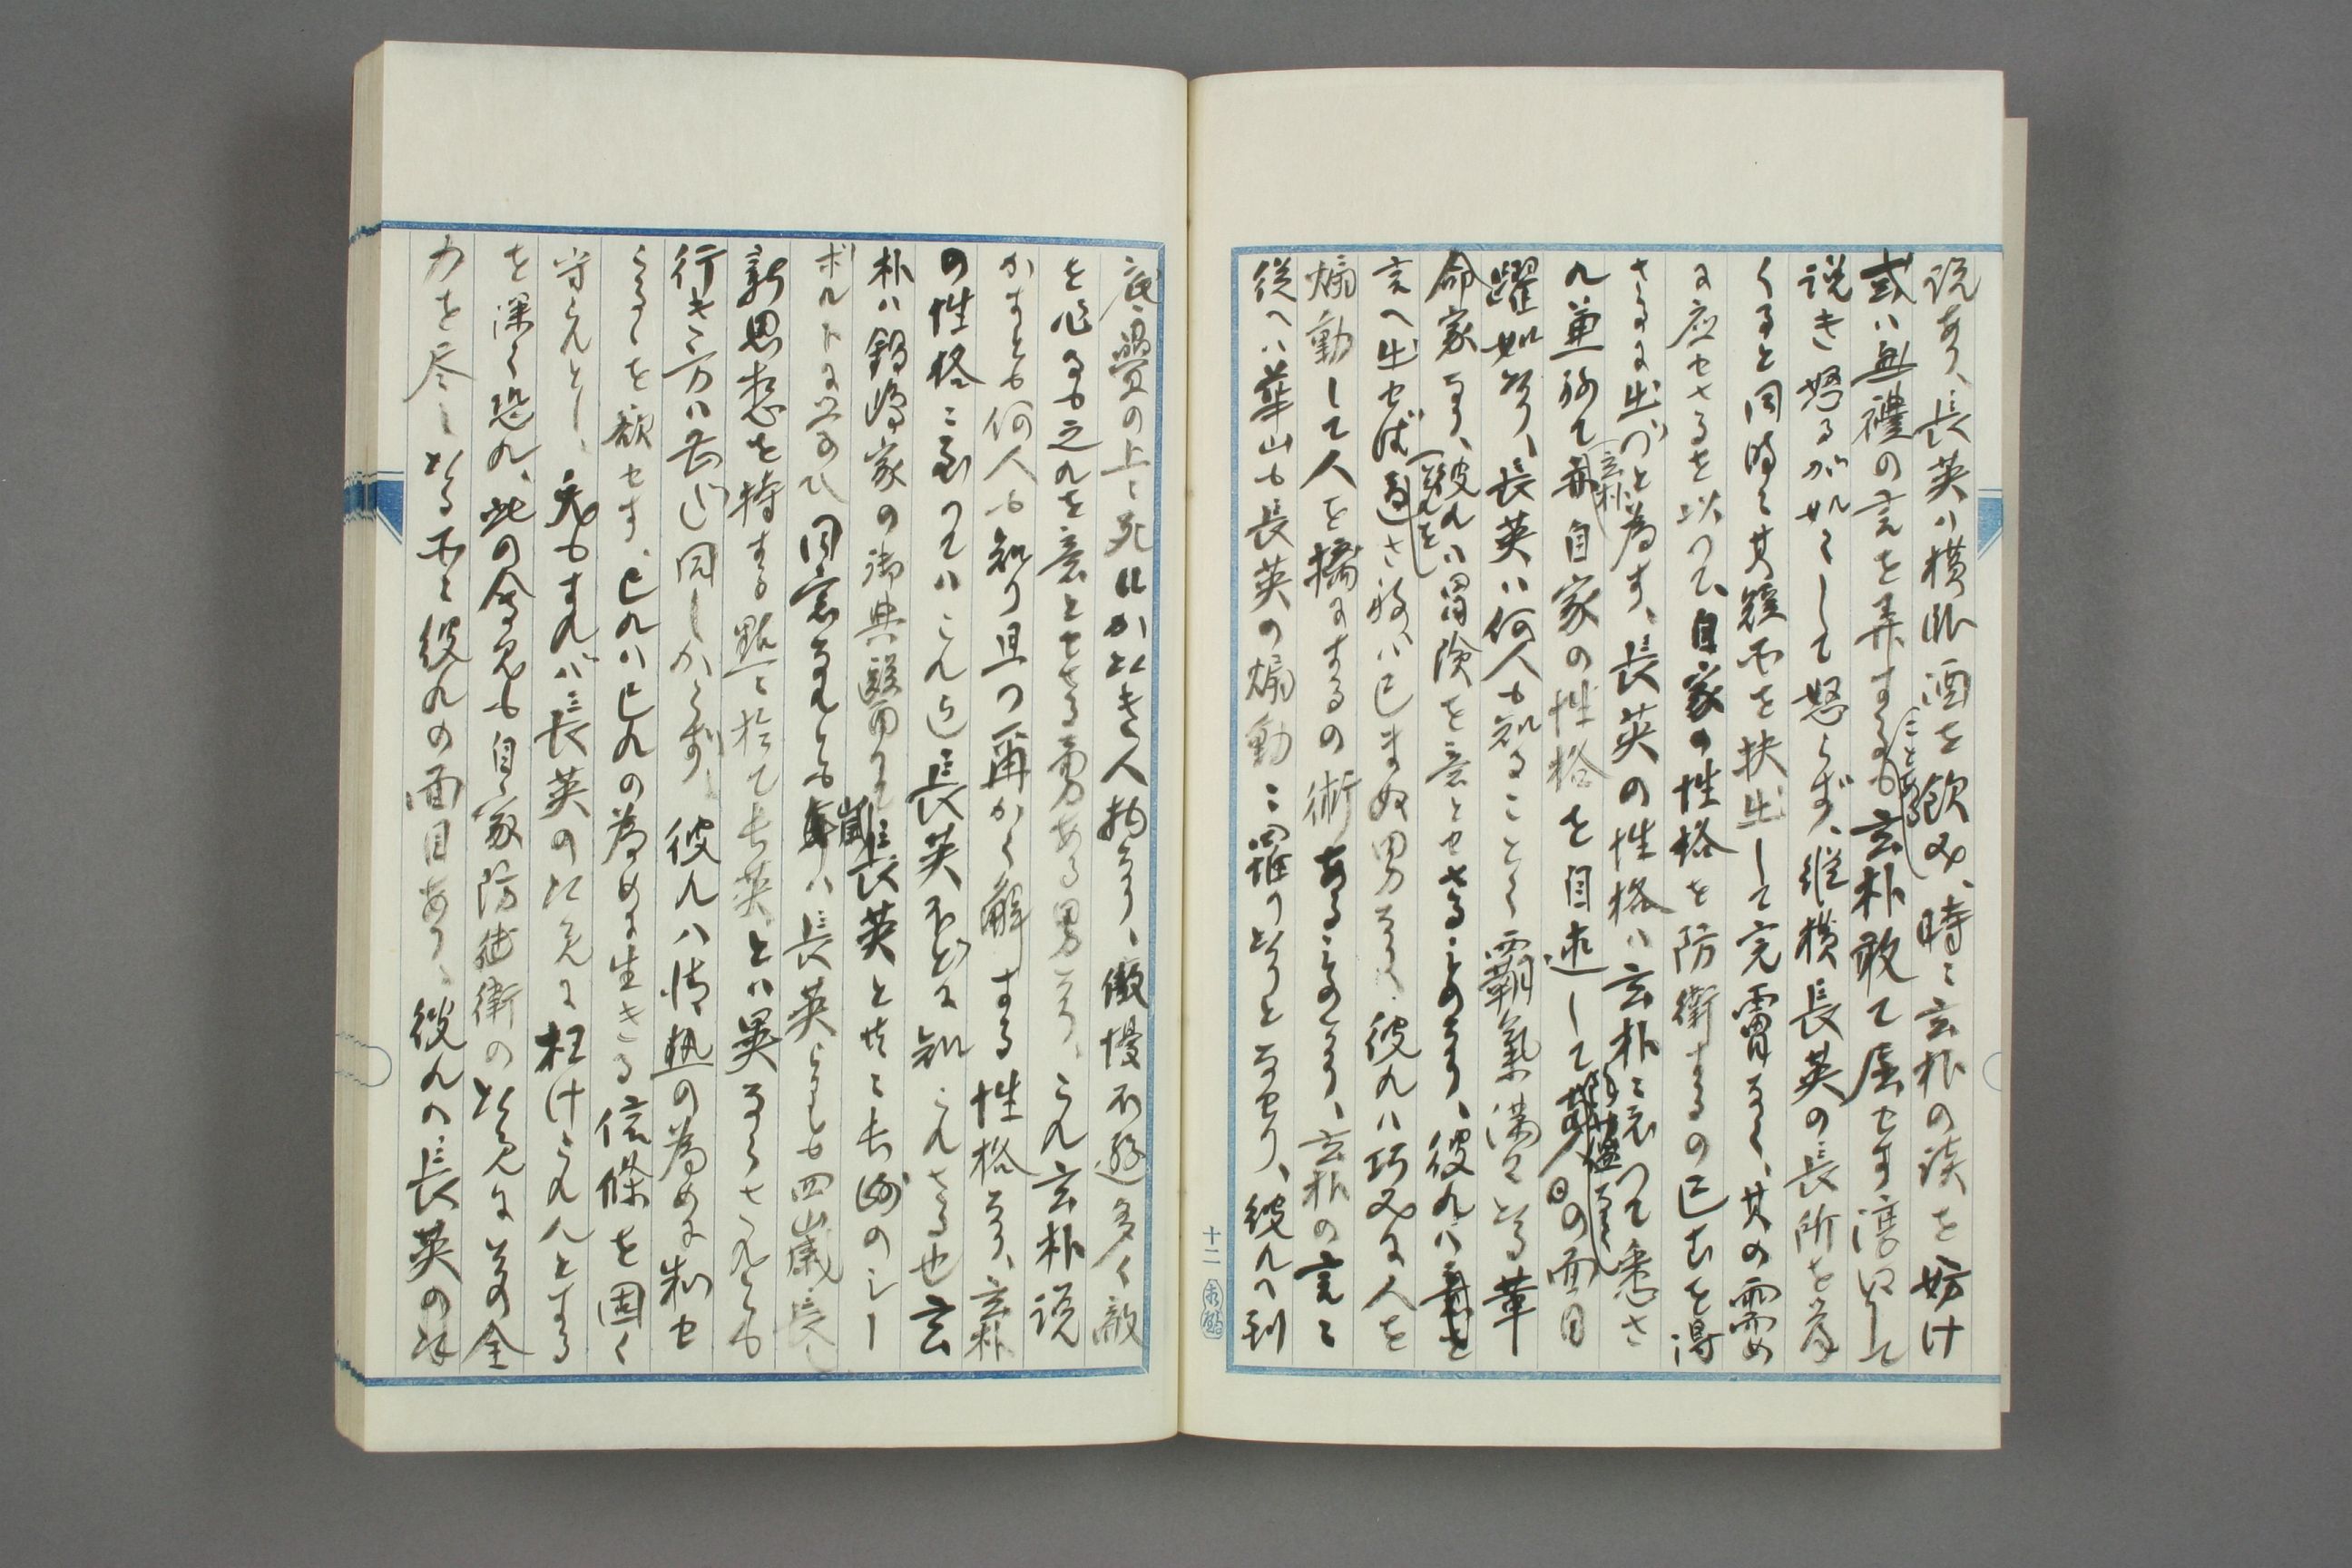 説あり、長英ハ横臥酒を飲み、時に玄朴の談を妨け
或ハ無禮の言を弄することあるも玄朴敢て屈せす
説き怒るが如くして怒らず、縦横長英の長所を挙
くると同時に其短所を抉出して完膚なく、其の需め
に応せさるを以つて、自家の性格を防衛するの已むを得
さるに出づと為す、長英の性格ハ玄朴に依つて悉さ
れ兼ねて玄朴自家の性格を自述して
躍如たり、長英ハ何人も知ることく覇氣満々たる革
命家なり、彼れハ冒険を意とせさるものなり、彼れハ
言へ出せば通さねバ已まぬ男なり、彼れハ巧みに人を
煽動して人を擒にするの術あるものなり、玄朴の言に
従へハ華山も長英の煽動に罹りたりとなせり、彼れハ到
底畳の上に死にかたき人物なり、傲慢不遜多く敵
を作るも之れを意とせさる勇ある男なり、これ玄朴説
かすとも何人も知り且つ爾かく解する性格なり、玄朴
の性格に至つてハこれ迄長英ほどに知られさる也玄
朴ハ鍋嶋家の御典醫にて長英と共に長崎のシー
ボルトに学ひ同窓なれとも年歯ハ長英よりも四歳長し
新思想を持する點に於て長英とハ異ならされとも
行き方ハ長英と同しからず、彼れハ情熱の為めに制せ
らるゝを欲せす、已れハ已れの為めに生きる信條を固く
守らんとし、兎もすれバ長英の以て之に枉けられんとする
を深く恐れ、此の会見も自家防衛の以て之に其の全
力を尽したる所に彼れの面目あり、彼れハ長英の
十二